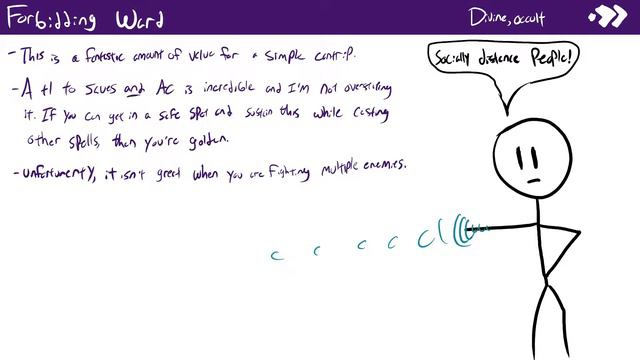 Forbidding Ward
Divine, occult
- This is a fantastic amount of value for a simple cantrip.
- A +1 to saves and AC is incredible and I'm not overstating
it. If you can get in a safe spot and sustain this while casting
other spells, then you're golden.
- unfortunently, it isn't great when you are fighting multiple enemies.
Socially distance People!